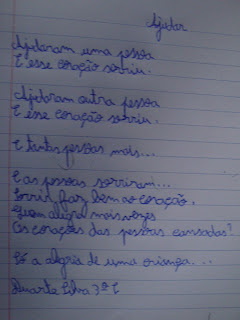 Ajudar
Ajudaram uma pessoa
E esse coração sorriu.
Ajudaram outra pessoa
E esse coração sorriu.
E tantas pessoas mais...
E as pessoas sorriram...
Sorrir faz bem ao coração.
Quem alegra mais vezes
Os corações das pessoas cansadas?
Só a alegria de uma criança...
Duarte Silva 3º E